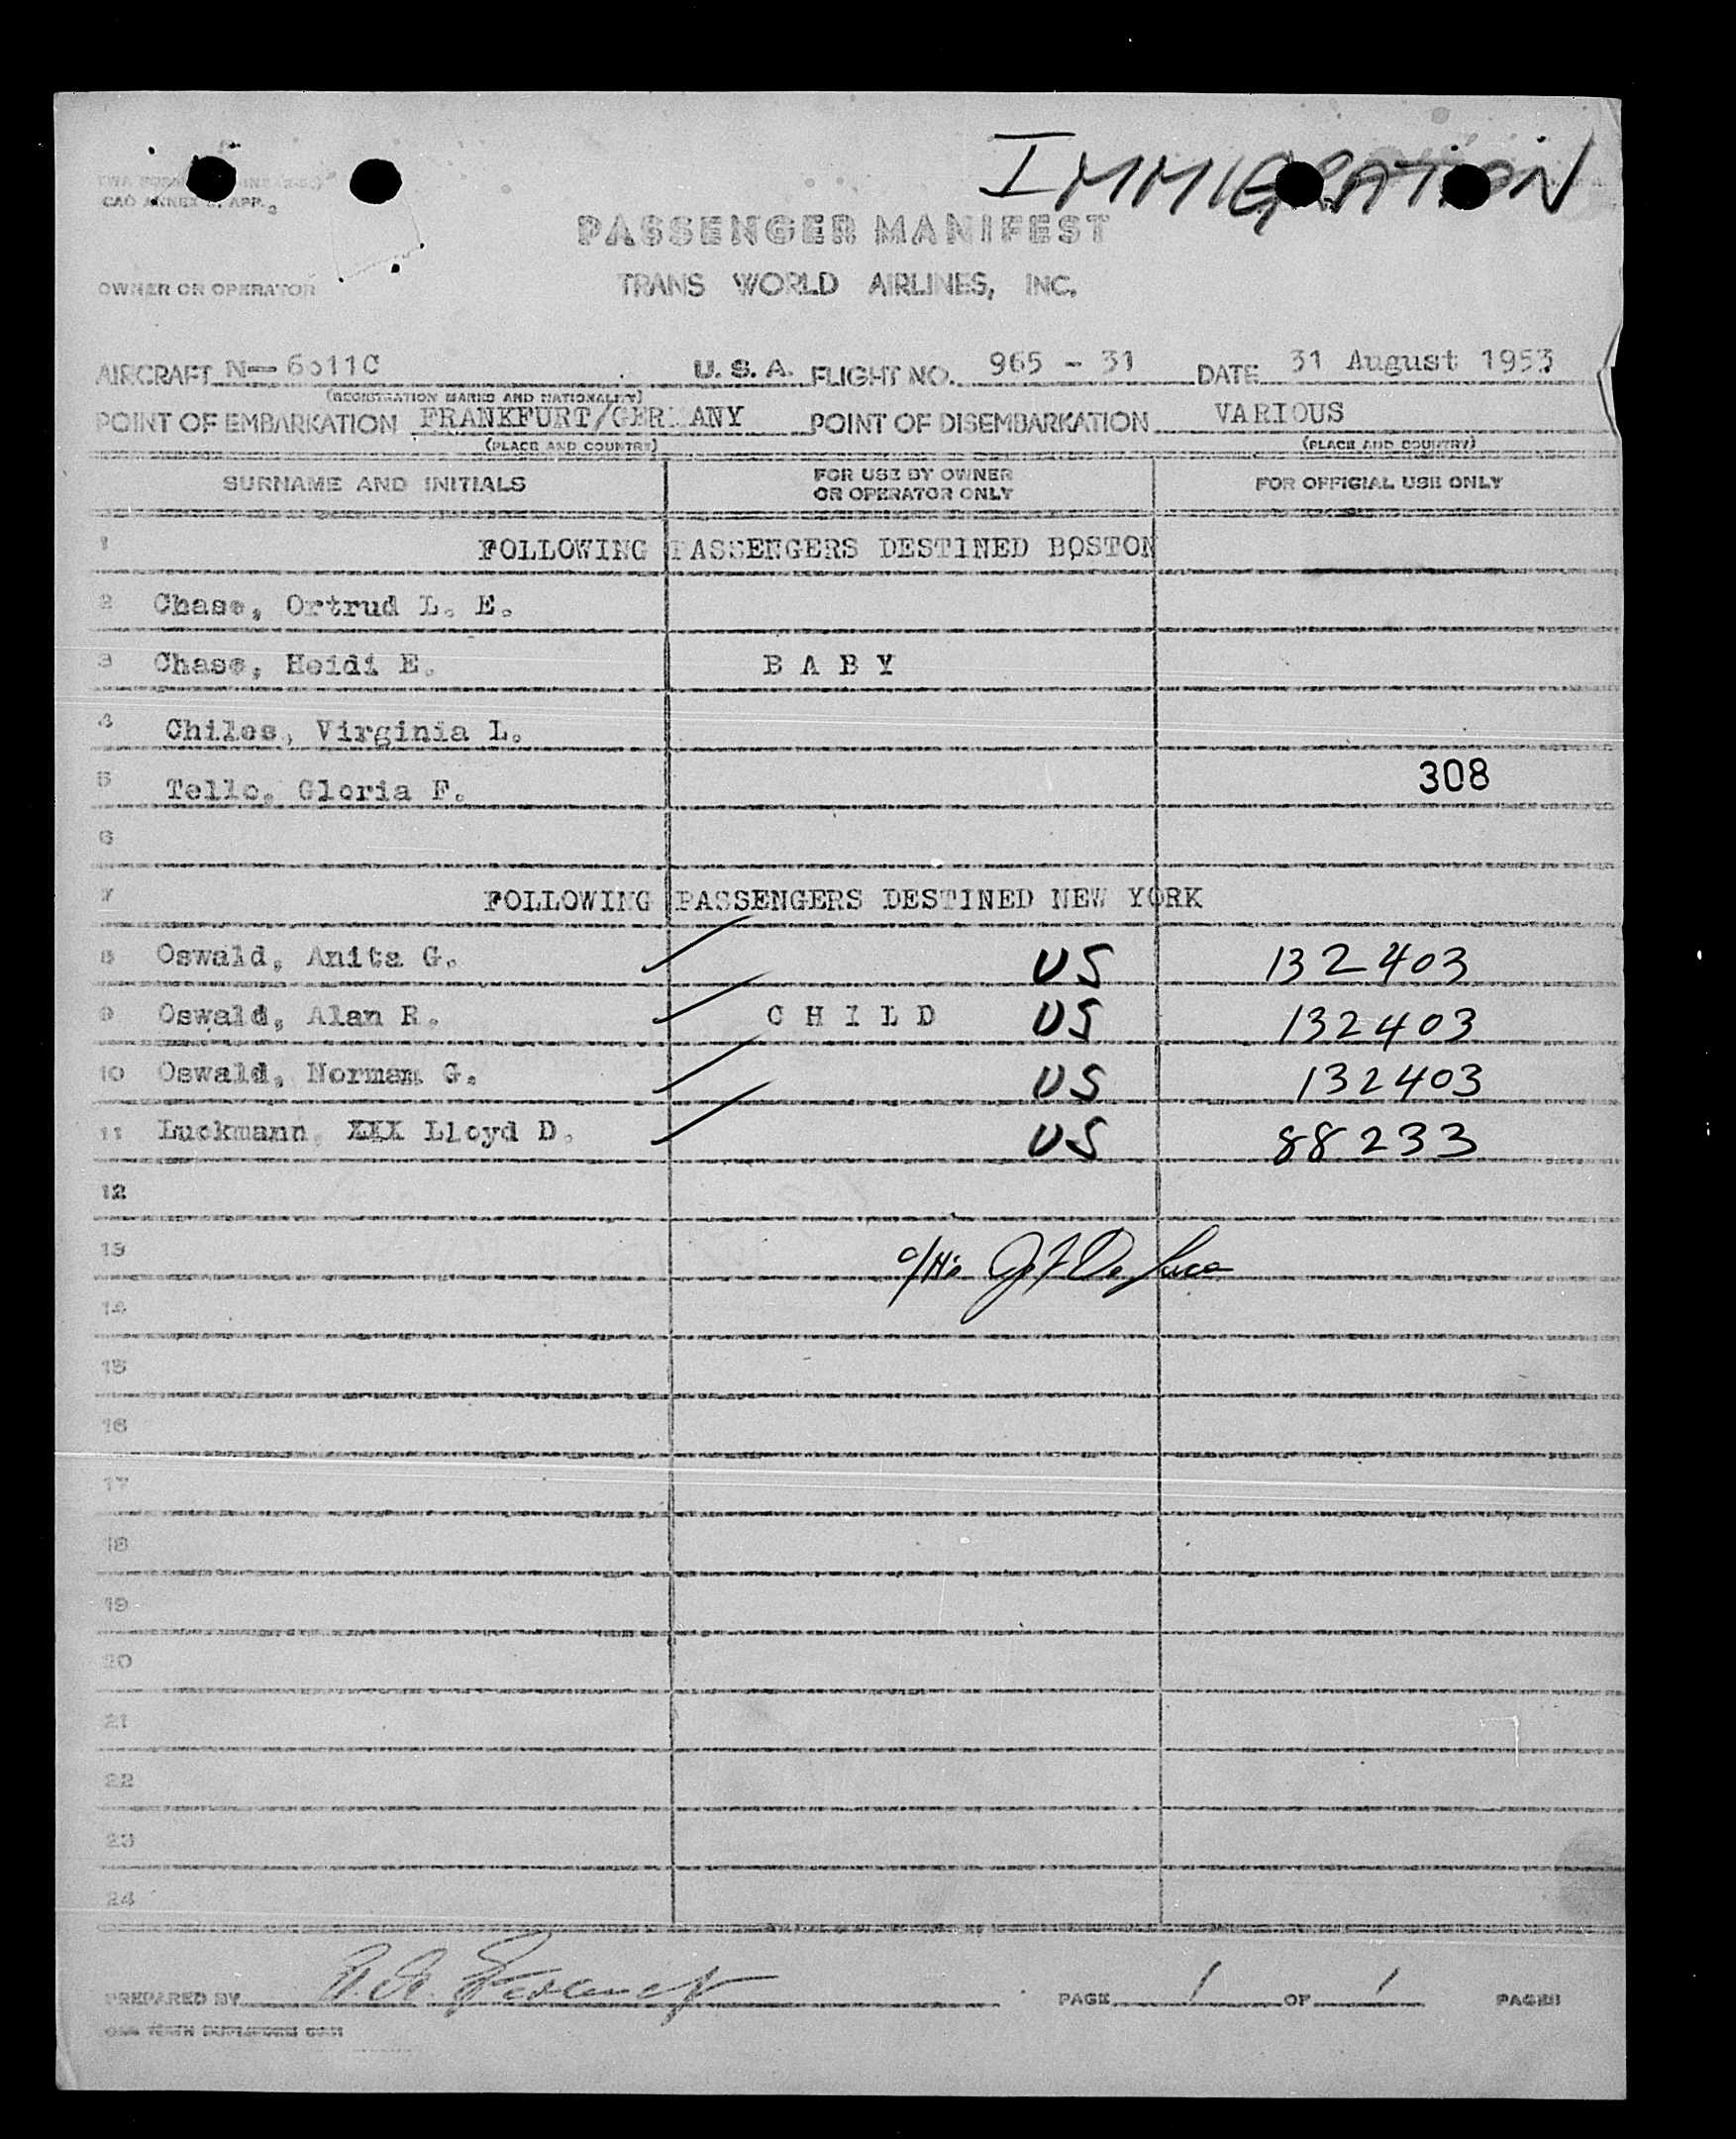 IMMIGRATION
CAO ANNEX
PASSENGER MANIFEST
OWNER OR OPERATOR TRANS WORLD AIRLINES, INC.
AIRCRAFT N- U. S. A. FLIGHT NO. 965 - 31 DATE 31 August 1953
(REGISTRATION MARKS AND NATIONALITY)
POINT OF EMBARKATION FRANKFURT/GERMANY POINT OF DISEMBARKATION VARIOUS
(PLACE AND COUNTRY) (PLACE AND COUNTRY)
SURNAME AND INITIALS FOR USE BY OWNER OR OPERATOR ONLY FOR OFFICIAL USE ONLY
1 FOLLOWING PASSENGERS DESTINED BOSTON
2 Chase, Ortrud L. E.
3 Chase, Heidi E. B A B Y
4 Chiles, Virginia L.
5 Tello, Gloria F. 308
6
7 FOLLOWING PASSENGERS DESTINED NEW YORK
8 Oswald, Anita G. US 132403
9 Oswald, Alan R. C H I L D US 132403
10 Oswald, Norman G. US 132403
11 Luckmann, XXX Lloyd D. US 88233
12
13
14
15
16
17
18
19
20
21
22
23
24
PREPARED BY PAGE 1 OF 1 PAGES